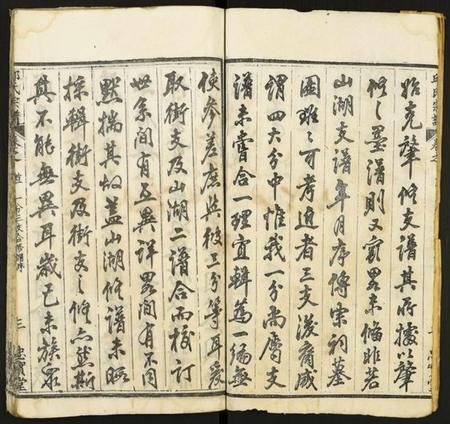 始克肇修支譜其所據以肇
修之墨譜則又窮畧未備非若
山湖支譜年月序傳宗祠墓
圖班班可考近者三支後裔咸
謂四大分中惟我一分尚屬支
譜未嘗合一理宜輯為一編無
使參差庶與彼三分等耳爰
取衝支及山湖二譜合而校訂
世系間有互異詳畧間有不同
默揣其故蓋山湖修譜未暇
採輯衝支及衝支之修亦然斯
其不能無異耳歲己未族眾
邱氏宗譜
卷之
首
三